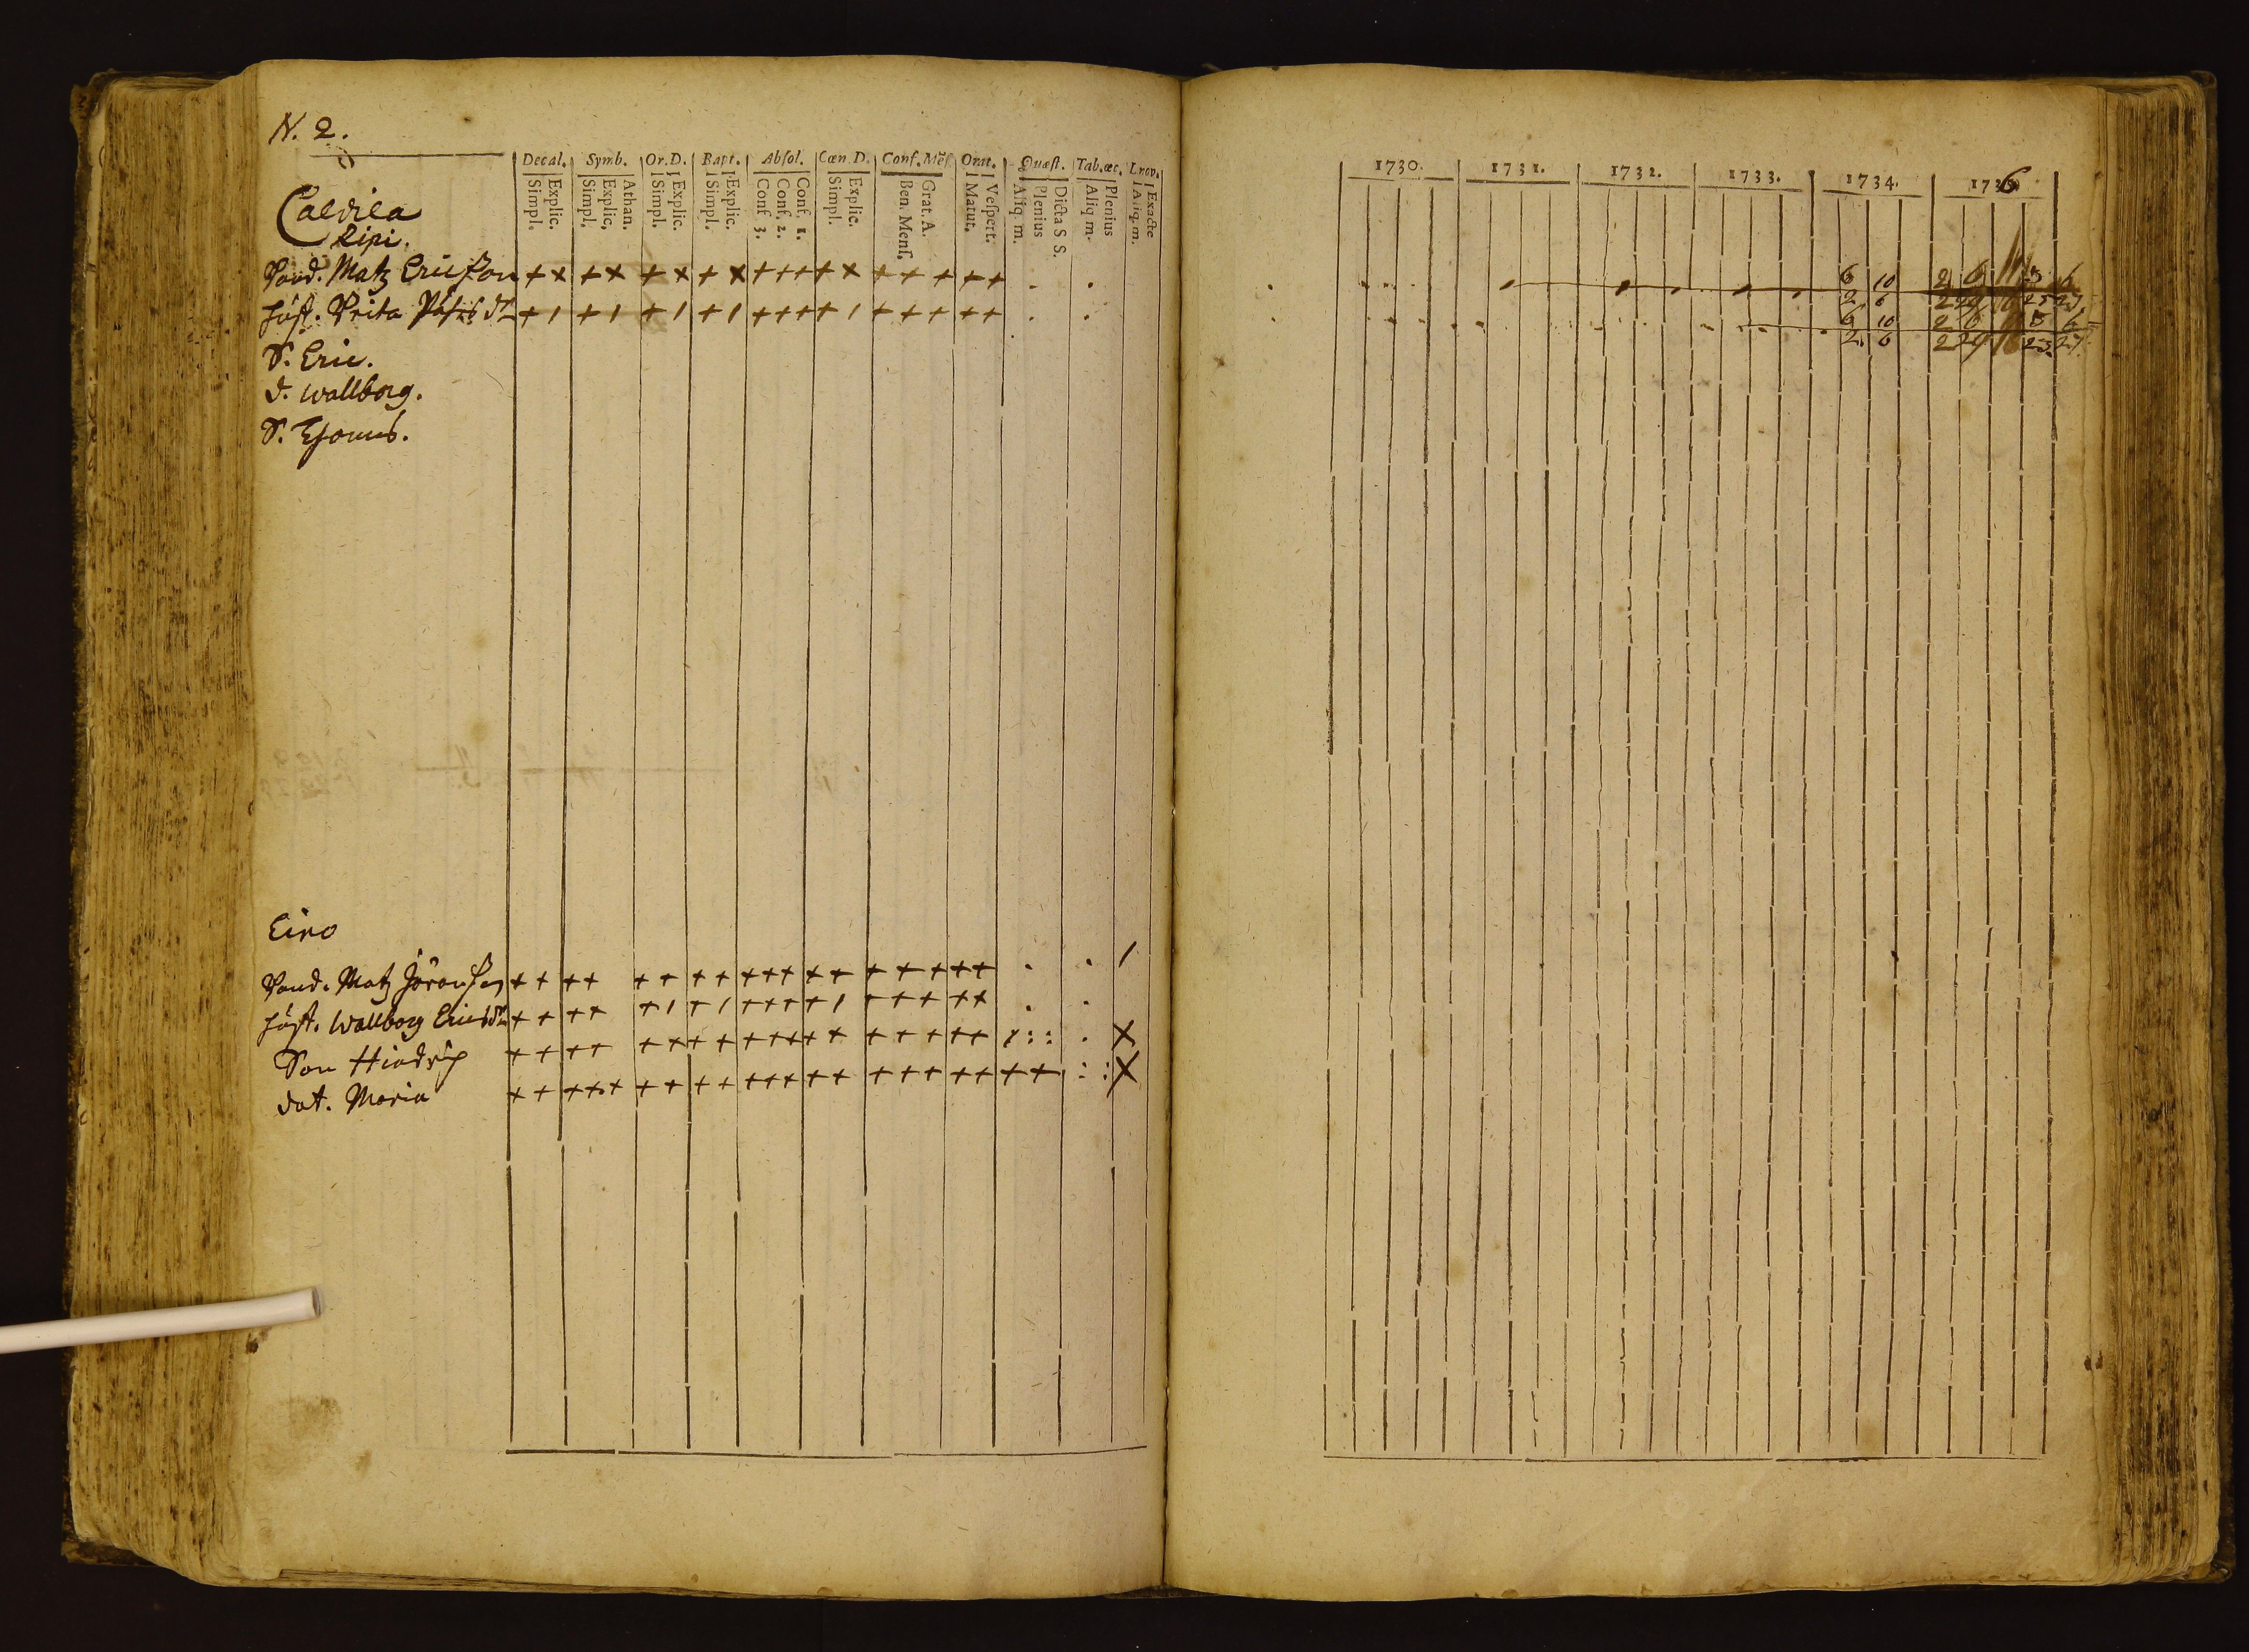 N. 2.
Decal. Symb. Or. D. Bapt. Absol. Cœn. D. Conf. Mẽs Orat. Quæst. Tab. œc. L nov.
Simpl. Explic. Simpl. Explic. Athan. Simpl. Explic. Simpl. Explic. Conf 3. Conf. 2. Conf. 1. Simpl. Explic. Ben. Mens. Grat. A. Matut. Vespert. Aliq. m. Plenius Dicta S S. Aliq m. Plenius Aliq. m. Exacte
Caldila
Lipi.
Bond. Matz Ericsson + x + x + x + x + + + + x + + + + + . .
Hust. Brita + / + / + / + / + + + + / + + + + + . .
S. Eric.
d. Wallborg.
S.
Eiro
Bond. Matz Jöransson + + + + + + + + + + + + + + + + + + . . /
Hust. Wallborg Ericsdr + + + + + / + / + + + + / + + + + + . .
Son Hindrich + + + + + + + + + + + + + + + + + + : : . X
dot. Maria + + + + + + + + + + + + + + + + + + + + + : : X
1730. 1731. 1732. 1733. 1734. 1736
6 10 2 6
2 6
6 10 2 6
2 6